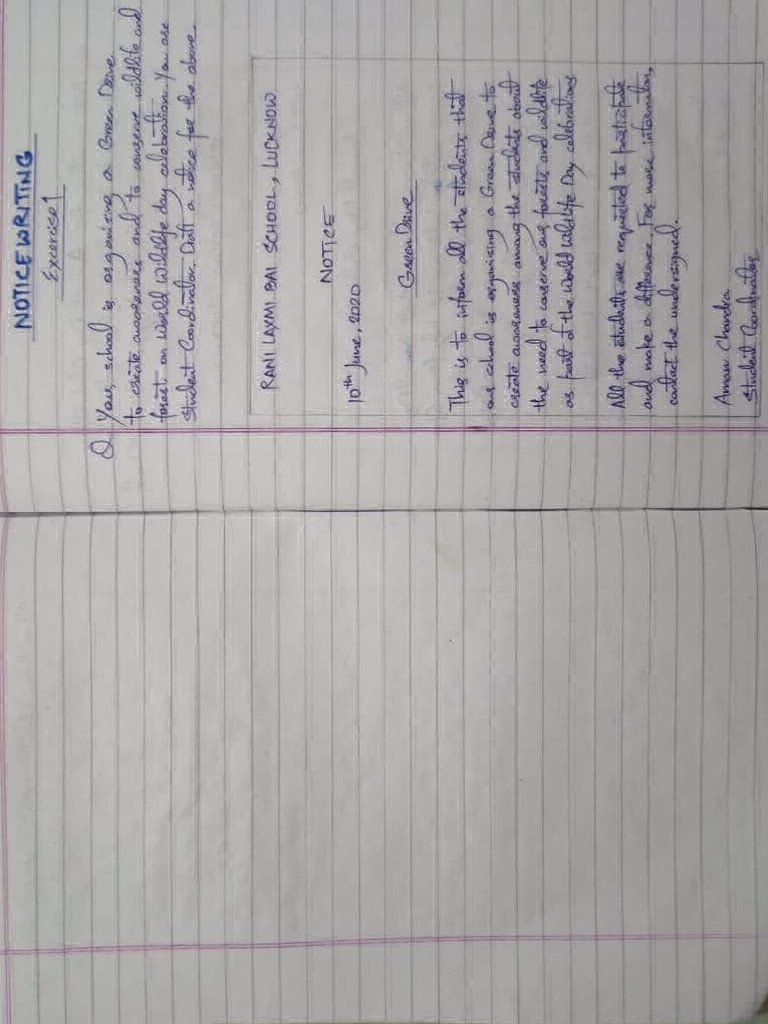 NOTICE WRITING
Excercise 1
Q Your school is organising a Green Drive
to create awareness and to conserve wildlife and
forest on World Wildlife day celebration. You are
Student Coordinator. Draft a notice for the above.
RANI LAXMI BAI SCHOOL, LUCKNOW
NOTICE
10th June, 2020
Green Drive
This is to inform all the students that
our school is organising a Green Drive to
create awareness among the students about
the need to conserve our forests and wildlife
as part of the World Wildlife Day celebrations
All the students are requested to participate
and make a difference. For more information,
contact the undersigned.
Aman Chandra
Student Coordinator